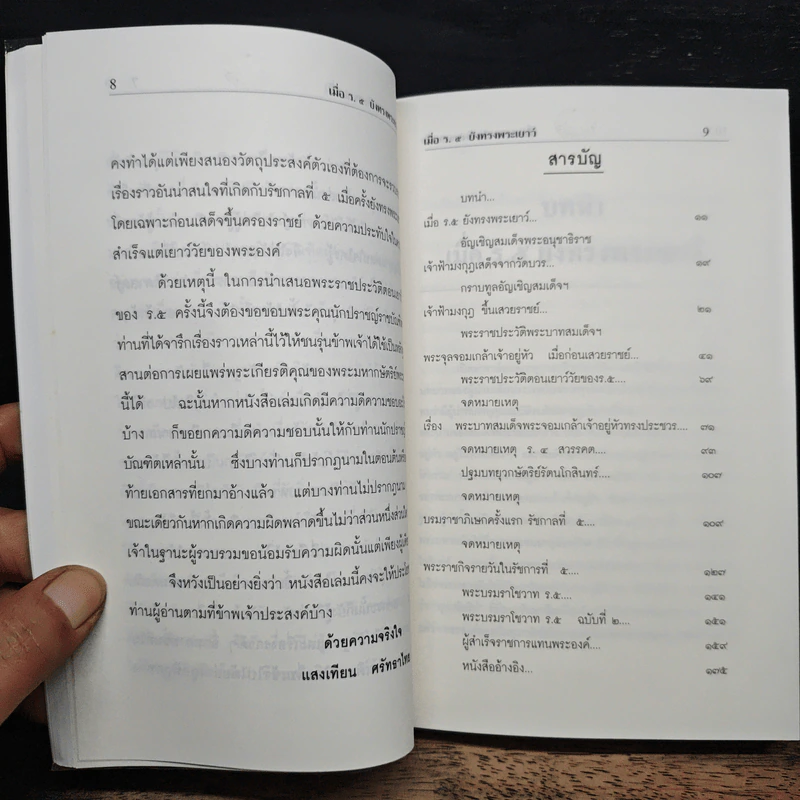 8
เมื่อ ร. ๕ ยังทรงพระเยาว์
คงทำได้แต่เพียงสนองวัตถุประสงค์ตัวเองที่ต้องการจะ
เรื่องราวอันน่าสนใจที่เกิดกับรัชกาลที่ ๕ เมื่อครั้งยังทรงพระ
โดยเฉพาะก่อนเสด็จขึ้นครองราชย์ ด้วยความประทับใจใน
สำเร็จแต่เยาว์วัยของพระองค์
ด้วยเหตุนี้ ในการนำเสนอพระราชประวัติตอน
ของ ร.๕ ครั้งนี้จึงต้องขอขอบพระคุณนักปราชญ์ราชบัณฑิต
ท่านที่ได้จารึกเรื่องราวเหล่านี้ไว้ให้ชนรุ่นข้าพเจ้าได้ใช้เป็น
สานต่อการเผยแพร่พระเกียรติคุณของพระมหากษัตริย์
นี้ได้ ฉะนั้นหากหนังสือเล่มเกิดมีความดีความชอบ
บ้าง ก็ขอยกความดีความชอบนั้นให้กับท่านนักปราชญ์
บัณฑิตเหล่านั้น ซึ่งบางท่านก็ปรากฏนามในตอนต้น
ท้ายเอกสารที่ยกมาอ้างแล้ว แต่บางท่านไม่ปรากฏนาม
ขณะเดียวกันหากเกิดความผิดพลาดขึ้นไม่ว่าส่วนหนึ่งส่วนใด
เจ้าในฐานะผู้รวบรวมขอน้อมรับความผิดนั้นแต่เพียง
จึงหวังเป็นอย่างยิ่งว่า หนังสือเล่มนี้คงจะให้ประโย
ท่านผู้อ่านตามที่ข้าพเจ้าประสงค์บ้าง
ด้วยความจริงใจ
แสงเทียน ศรัทธาไทย
เมื่อ ร. ๕ ยังทรงพระเยาว์ 9
สารบัญ
บทนำ...
เมื่อ ร.๕ ยังทรงพระเยาว์... ๑๑
อัญเชิญสมเด็จพระอนุชาธิราช
เจ้าฟ้ามงกุฎเสด็จจากวัดบวร... ๑๙
กราบทูลอัญเชิญสมเด็จฯ
เจ้าฟ้ามงกุฎ ขึ้นเสวยราชย์... ๒๑
พระราชประวัติพระบาทสมเด็จฯ
พระจุลจอมเกล้าเจ้าอยู่หัว เมื่อก่อนเสวยราชย์... ๔๑
พระราชประวัติตอนเยาว์วัยของร.๕.... ๖๙
จดหมายเหตุ
เรื่อง พระบาทสมเด็จพระจอมเกล้าเจ้าอยู่หัวทรงประชวร.... ๗๑
จดหมายเหตุ ร. ๔ สวรรคต.... ๙๓
ปฐมบทยุวกษัตริย์รัตนโกสินทร์.... ๑๐๗
จดหมายเหตุ
บรมราชาภิเษกครั้งแรก รัชกาลที่ ๕.... ๑๐๙
จดหมายเหตุ
พระราชกิจรายวันในรัชการที่ ๕.... ๑๒๗
พระบรมราโชวาท ร.๕.... ๑๔๑
พระบรมราโชวาท ร.๕ ฉบับที่ ๒.... ๑๕๑
ผู้สำเร็จราชการแทนพระองค์.... ๑๕๙
หนังสืออ้างอิง... ๑๗๕